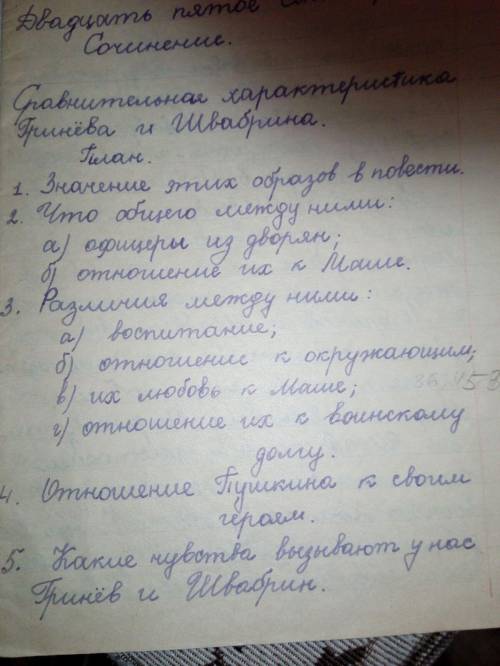 Двадцать пятое
Сочинение.
Сравнительная характеристика
Гринёва и Швабрина.
План.
1. Значение этих образов в повести.
2. Что общего между ними:
а) офицеры из дворян;
б) отношение их к Маше.
3. Различия между ними:
а) воспитание;
б) отношение к окружающим;
в) их любовь к Маше;
г) отношение их к воинскому
долгу.
4. Отношение Пушкина к своим
героям.
5. Какие чувства вызывают у нас
Гринёв и Швабрин.